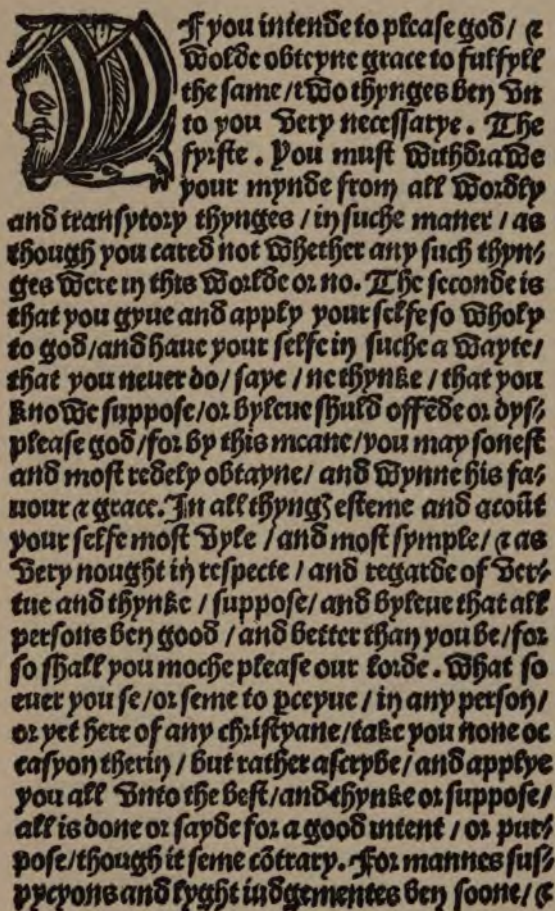 If you intende to please god / ⁊
wolde obteyne grace to fulfyll
the same / two thynges ben vn
to you very necessarye. The
fyrste. You must withdrawe
your mynde from all wordly
and transytory thynges / in suche maner / as
though you cared not whether any such thyn⸗
ges were in this worlde or no. The seconde is
that you gyue and apply your selfe so wholy
to god / and haue your selfe in suche a wayte /
that you neuer do / saye / ne thynke / that you
knowe suppose / or byleue shuld offēde or dys⸗
please god / for by this meane / you may sonest
and most redely obtayne / and wynne his fa⸗
uour ⁊ grace. In all thyngꝫ esteme and acoūt
your selfe most vyle / and most symple / ⁊ as
very nought in respecte / and regarde of ver⸗
tue and thynke / suppose / and byleue that all
persons ben good / and better than you be / for
so shall you moche please our lorde. What so
euer you se / or seme to ꝑceyue / in any person /
or yet here of any christyane / take you none oc
casyon therin / but rather ascrybe / and applye
you all vnto the best / and thynke or suppose /
all is done or sayde for a good intent / or pur⸗
pose / though it seme cōtrary. For mannes sus⸗
pycyons and lyght iudgementes ben soone / ⁊